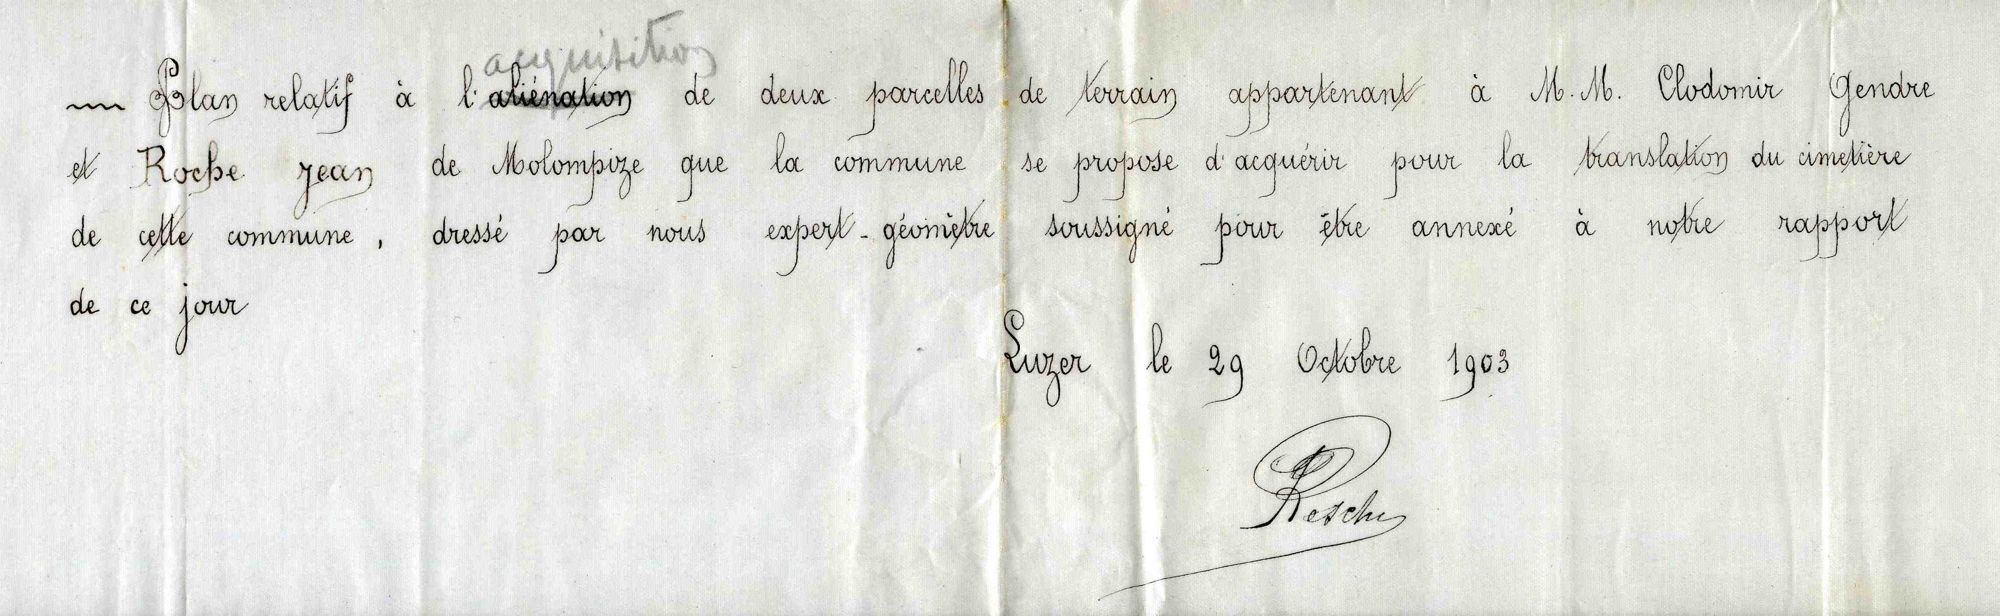 acquisition
Plan relatif à l'aliénation de deux parcelles de terrain appartenant à M.M. Clodomir Gendre
et Roche Jean de Molompize que la commune se propose d'acquérir pour la translation du cimetière
de cette commune, dressé par nous expert-géomètre soussigné pour être annexé à notre rapport
de ce jour
Luzer le 29 Octobre 1903